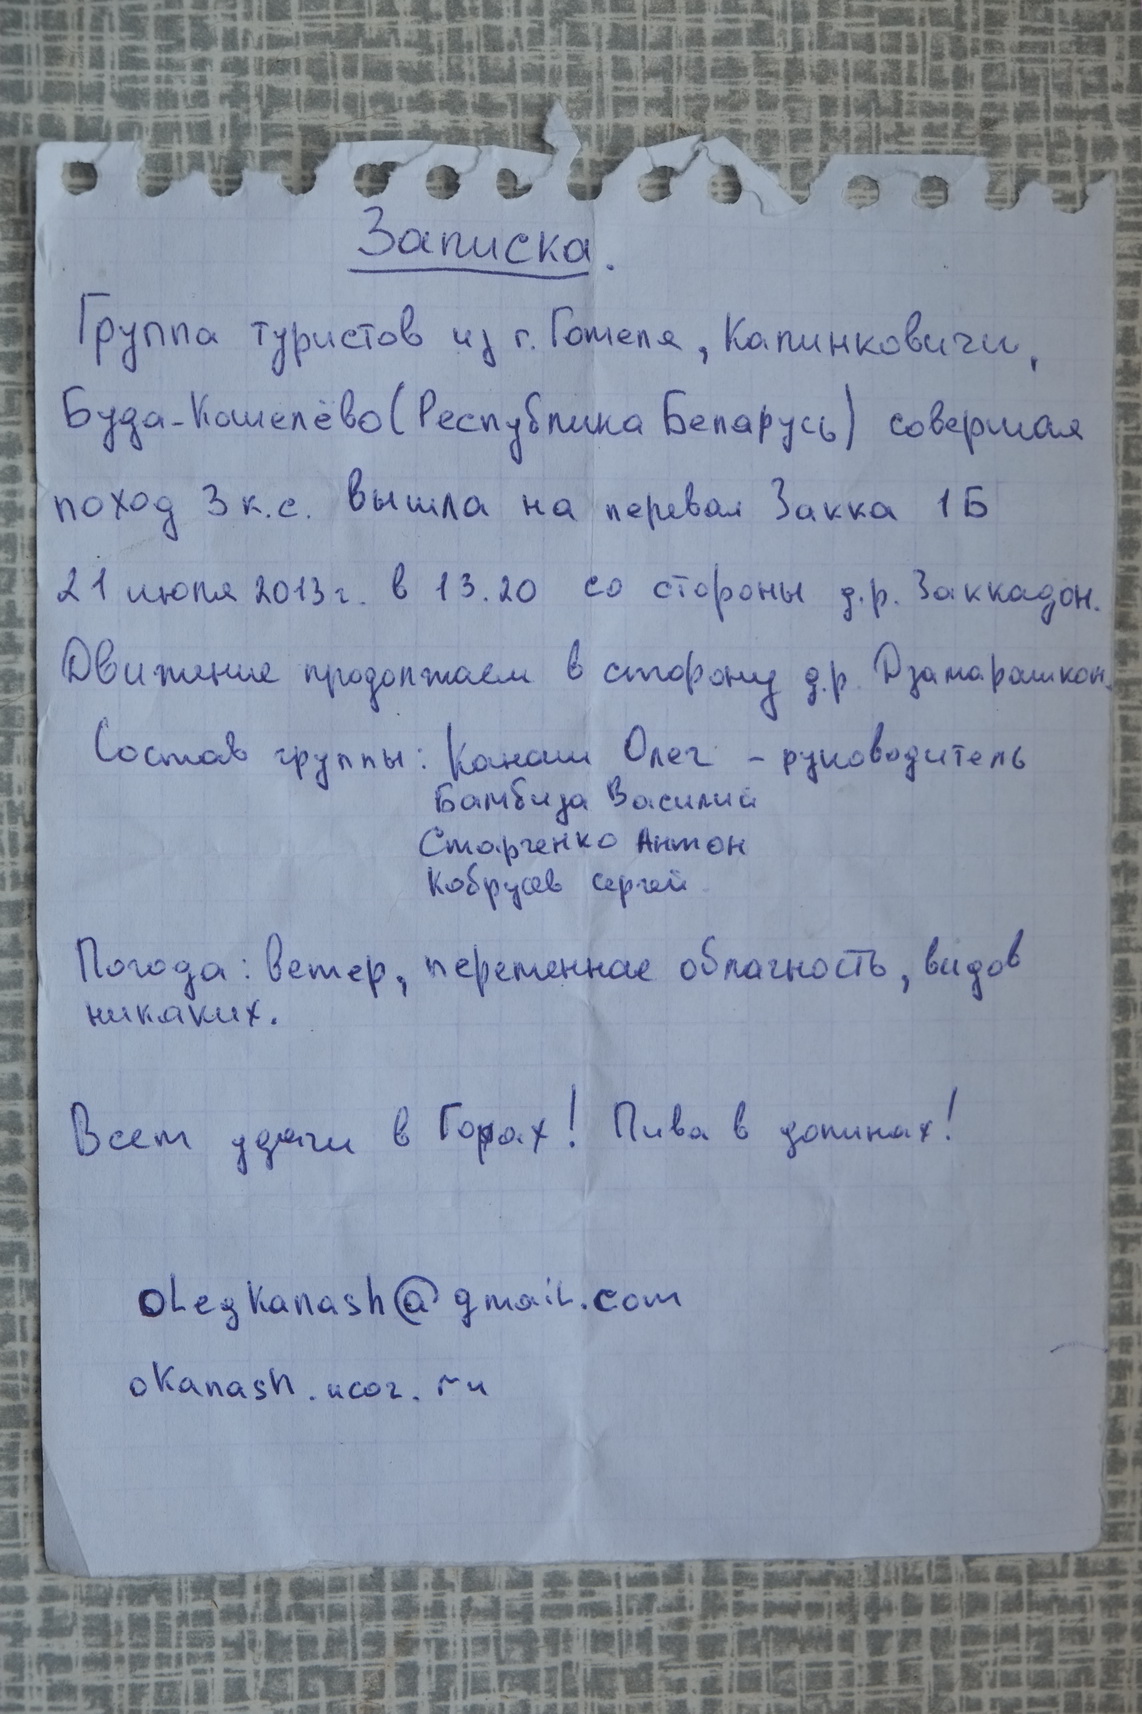 Записка.
Группа туристов из г. Гомеля, Калинковичи,
Буда-Кошелёво (Республика Беларусь) совершая
поход 3 к.с. вышла на перевал Закка 1Б
21 июля 2013г. в 13.20 со стороны д.р. Заккадон.
Движение продолжаем в сторону д.р. Дзамарашкон.
Состав группы: Канаш Олег - руководитель
Бамбиза Василий
Старченко Антон
Кобрусев Сергей
Погода: Ветер, переменная облачность, видов
никаких.
Всем удачи в Горах! Пива в долинах!
olegkanash@gmail.com
okanash.ucoz.ru